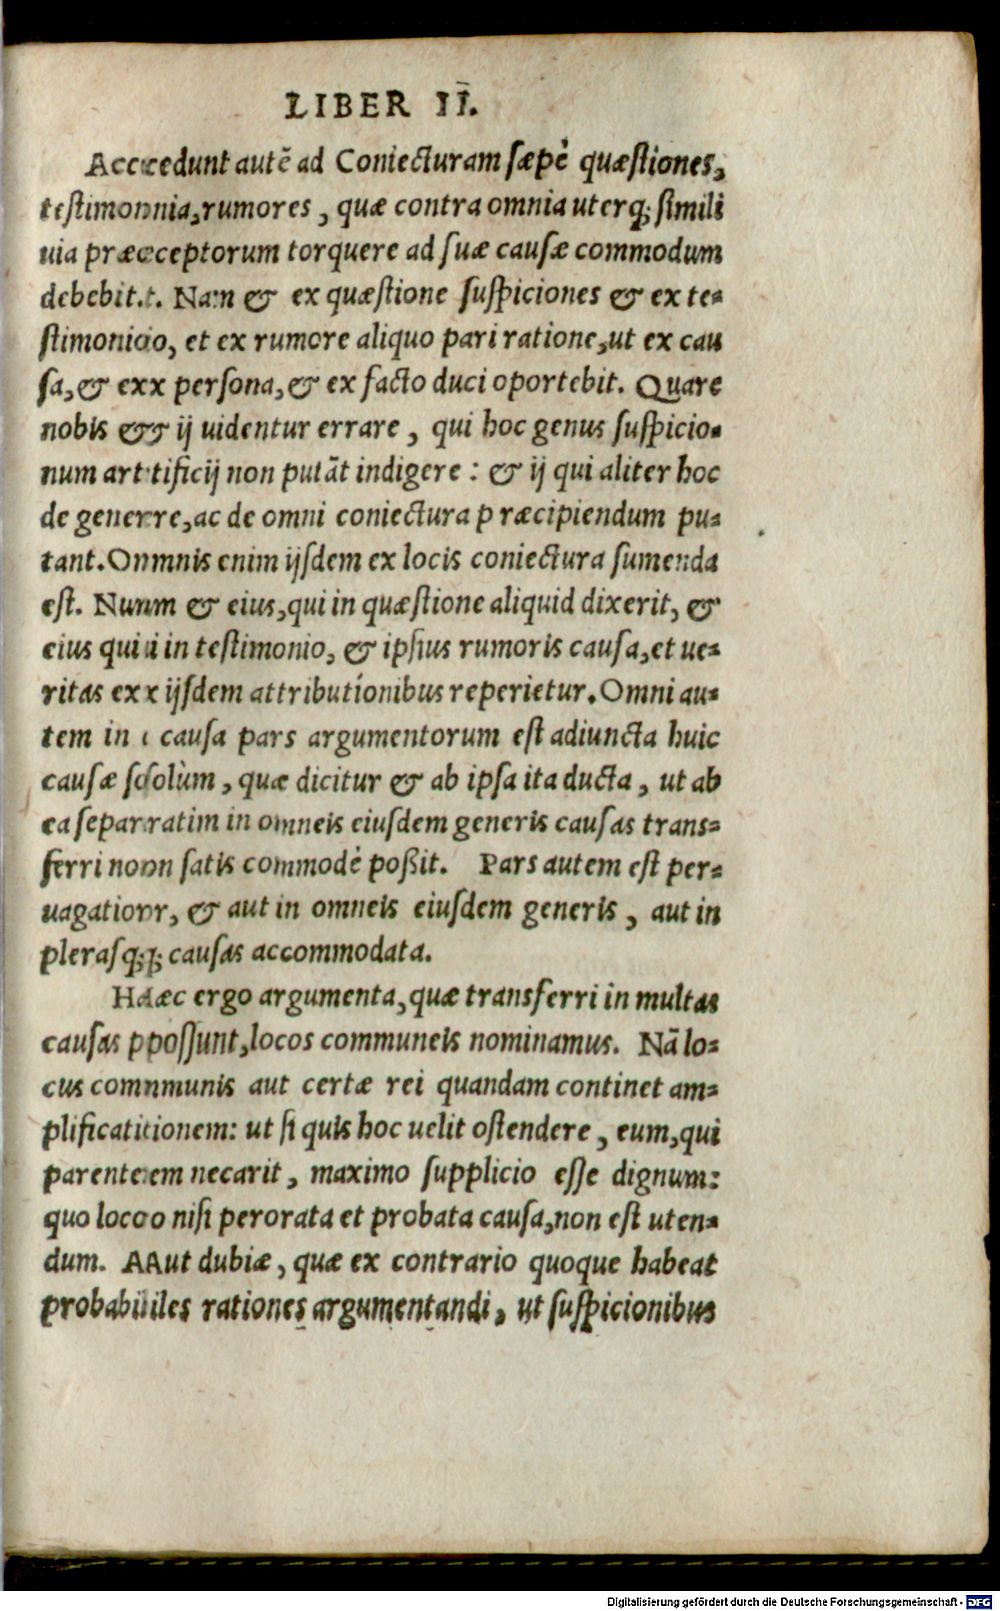 LIBER II.
Acccedunt autē ad Coniecturam sæpè quæstiones,
testimonnia, rumores, quæ contra omnia uterq; simili
uia præcceptorum torquere ad suæ causæ commodum
debebit.t. Nam & ex quæstione suspiciones & ex te=
stimonioio, et ex rumore aliquo pari ratione, ut ex cau
sa, & exx persona, & ex facto duci oportebit. Quare
nobis && ij uidentur errare, qui hoc genus suspicio=
num arttificij non putāt indigere: & ij qui aliter hoc
de generre, ac de omni coniectura præcipiendum pu=
tant. Onmnis enim ijsdem ex locis coniectura sumenda
est. Nunm & eius, qui in quæstione aliquid dixerit, &
eius quii in testimonio, & ipsius rumoris causa, et ue=
ritas exx ijsdem attributionibus reperietur. Omni au=
tem in causa pars argumentorum est adiuncta huic
causæ sosolùm, quæ dicitur & ab ipsa ita ducta, ut ab
ea separratim in omneis eiusdem generis causas trans=
ferri nonn satis commodè poßit. Pars autem est per=
uagatiorr, & aut in omneis eiusdem generis, aut in
plerasq;q; causas accommodata.
Haæc ergo argumenta, quæ transferri in multas
causas ppossunt, locos communeis nominamus. Nā lo=
cus comnmunis aut certæ rei quandam continet am=
plificatiionem: ut si quis hoc uelit ostendere, eum, qui
parenteem necarit, maximo supplicio esse dignum:
quo locoo nisi perorata et probata causa, non est uten=
dum. AAut dubiæ, quæ ex contrario quoque habeat
probabiiiles rationes argumentandi, ut suspicionibus
Digitalisierung gefördert durch die Deutsche Forschungsgemeinschaft - DFG